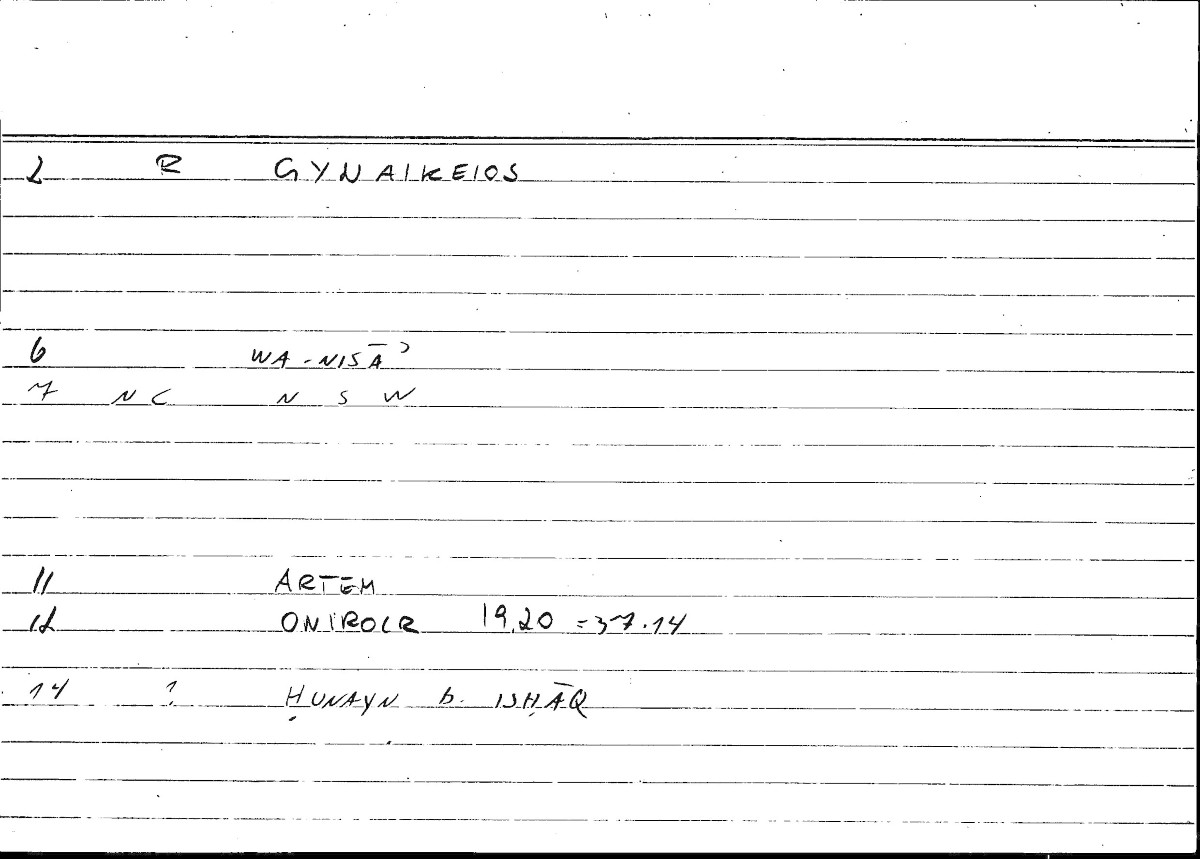 2 R GYNAIKEIOS
6 WA-NISĀʾ
7 NC N S W
11 ARTEM
12 ONIROCR 19,20 = 37.14
14 ? ḤUNAYN b. ISḤĀQ